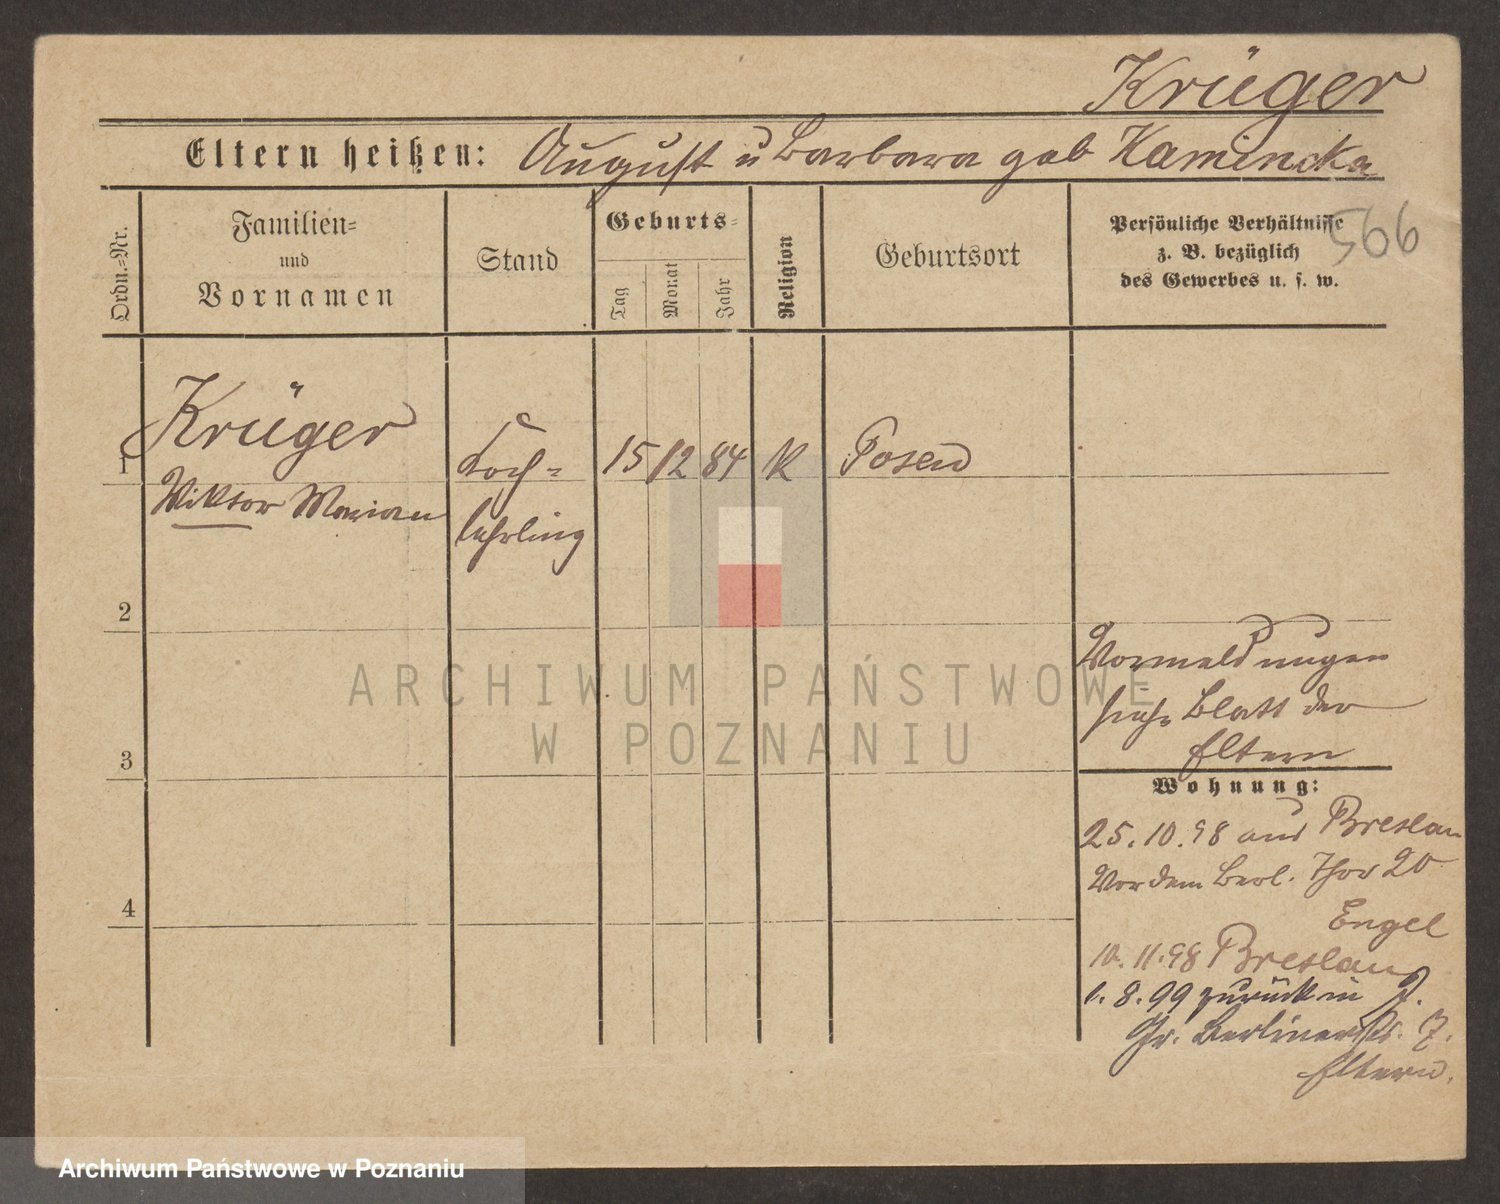 Krüger
Eltern heißen: August u Barbara geb Kamincka
Ordn.=Nr.
Familien=
und
Vornamen
Stand
Geburts=
Tag
Monat
Jahr
Religion
Geburtsort
Persönliche Verhältnisse
z. B. bezüglich
des Gewerbes u. s. w.
566
1
Krüger
Viktor Marian
Koch=
lehrling
15 12 84 K Posen
2
3
4
Vormeldungen
siehe Blatt der
Eltern
Wohnung:
25.10.98 aus Breslau
Vor dem Berl. Thor 20
Engel
10.11.98 Breslau
1.8.99 zurück in J.
Gr. Berlinerstr. 7.
Eltern.
ARCHIWUM PAŃSTWOWE
W POZNANIU
Archiwum Państwowe w Poznaniu